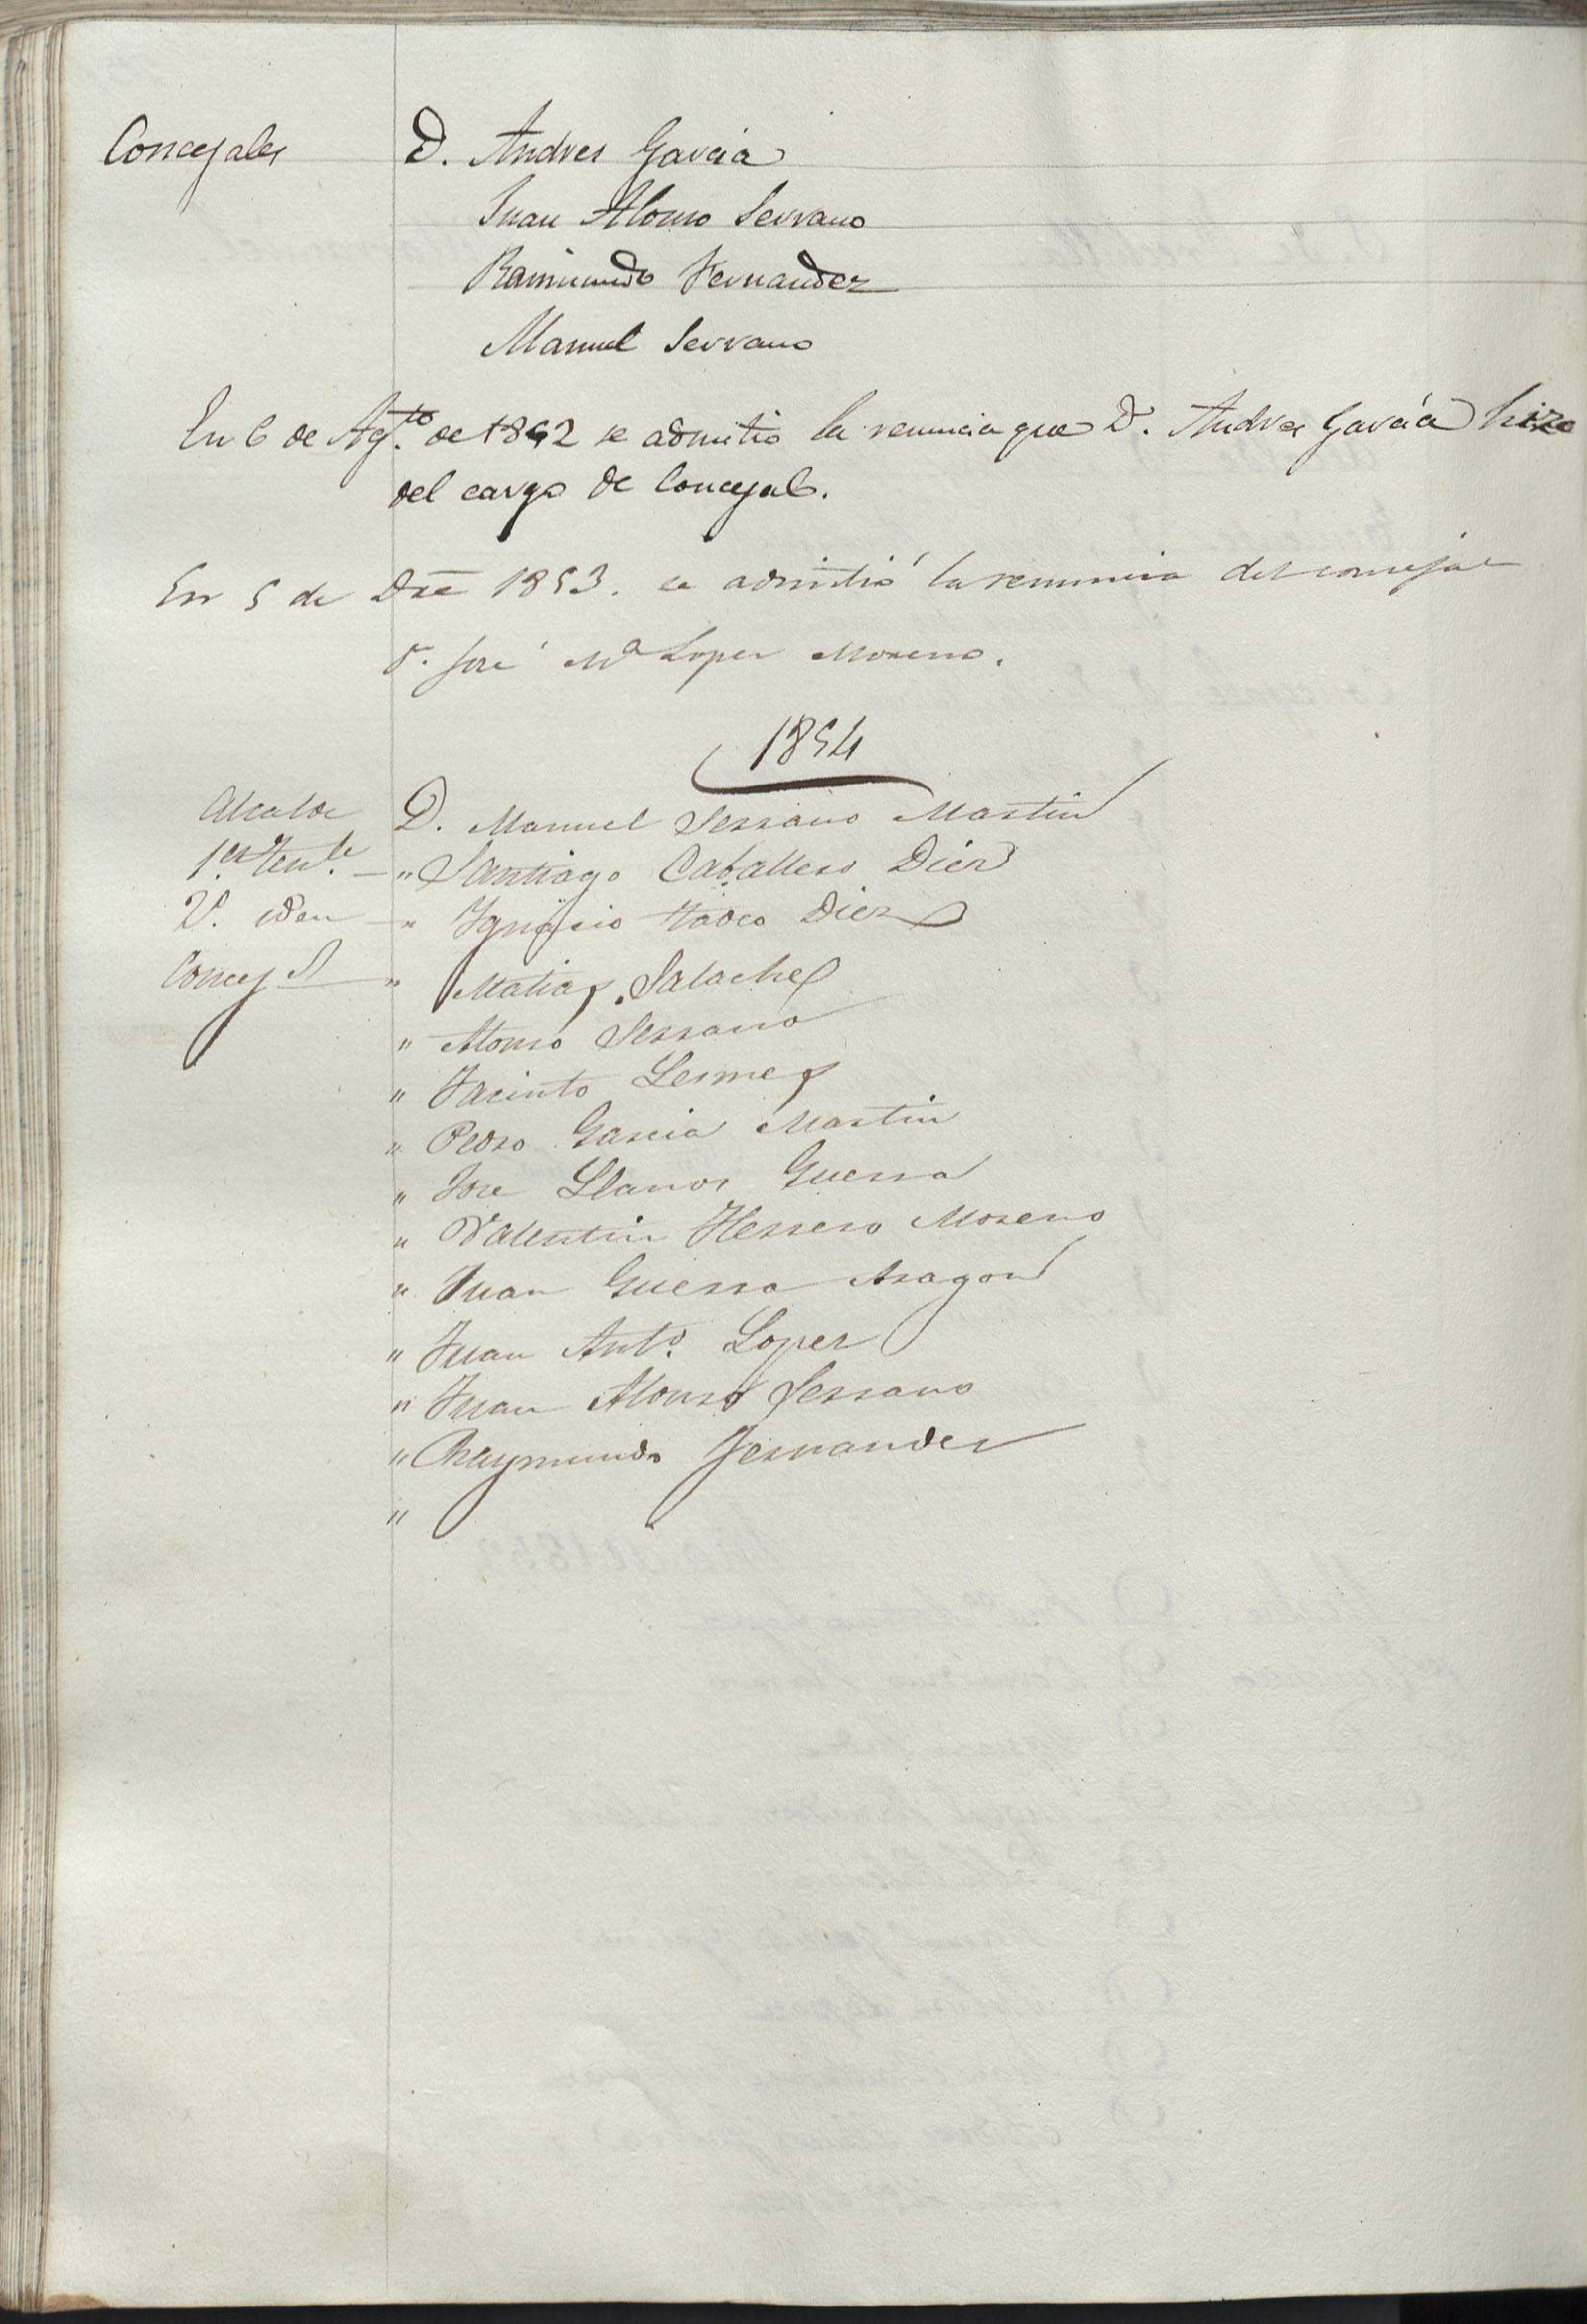 Concejales D. Andres Garcia
Juan Alonso Serrano
Raimundo Fernandez
Manuel Serrano
En 6 de Agto. de 1852 se admitio la renuncia que D. Andres Garcia hizo
del cargo de Concejal.
En 5 de Dre 1853. se admitió la renuncia del concejal
D. José Ma Lopez Moreno.
1854
Alcalde D. Manuel Serrano Martin
1er. Tente. — " Santiago Caballero Diez
2o. iden — " Ygnacio Tadeo Diez
Concejs — " Matias Salache
" Alonso Serrano
" Jacinto Lesmes
" Pedro Garcia Martin
" Jose Llanos Guerra
" Valentin Herrero Moreno
" Juan Guerra Aragon
" Juan Anto. Lopez
" Juan Alonso Serrano
" Raymundo Fernandez
"